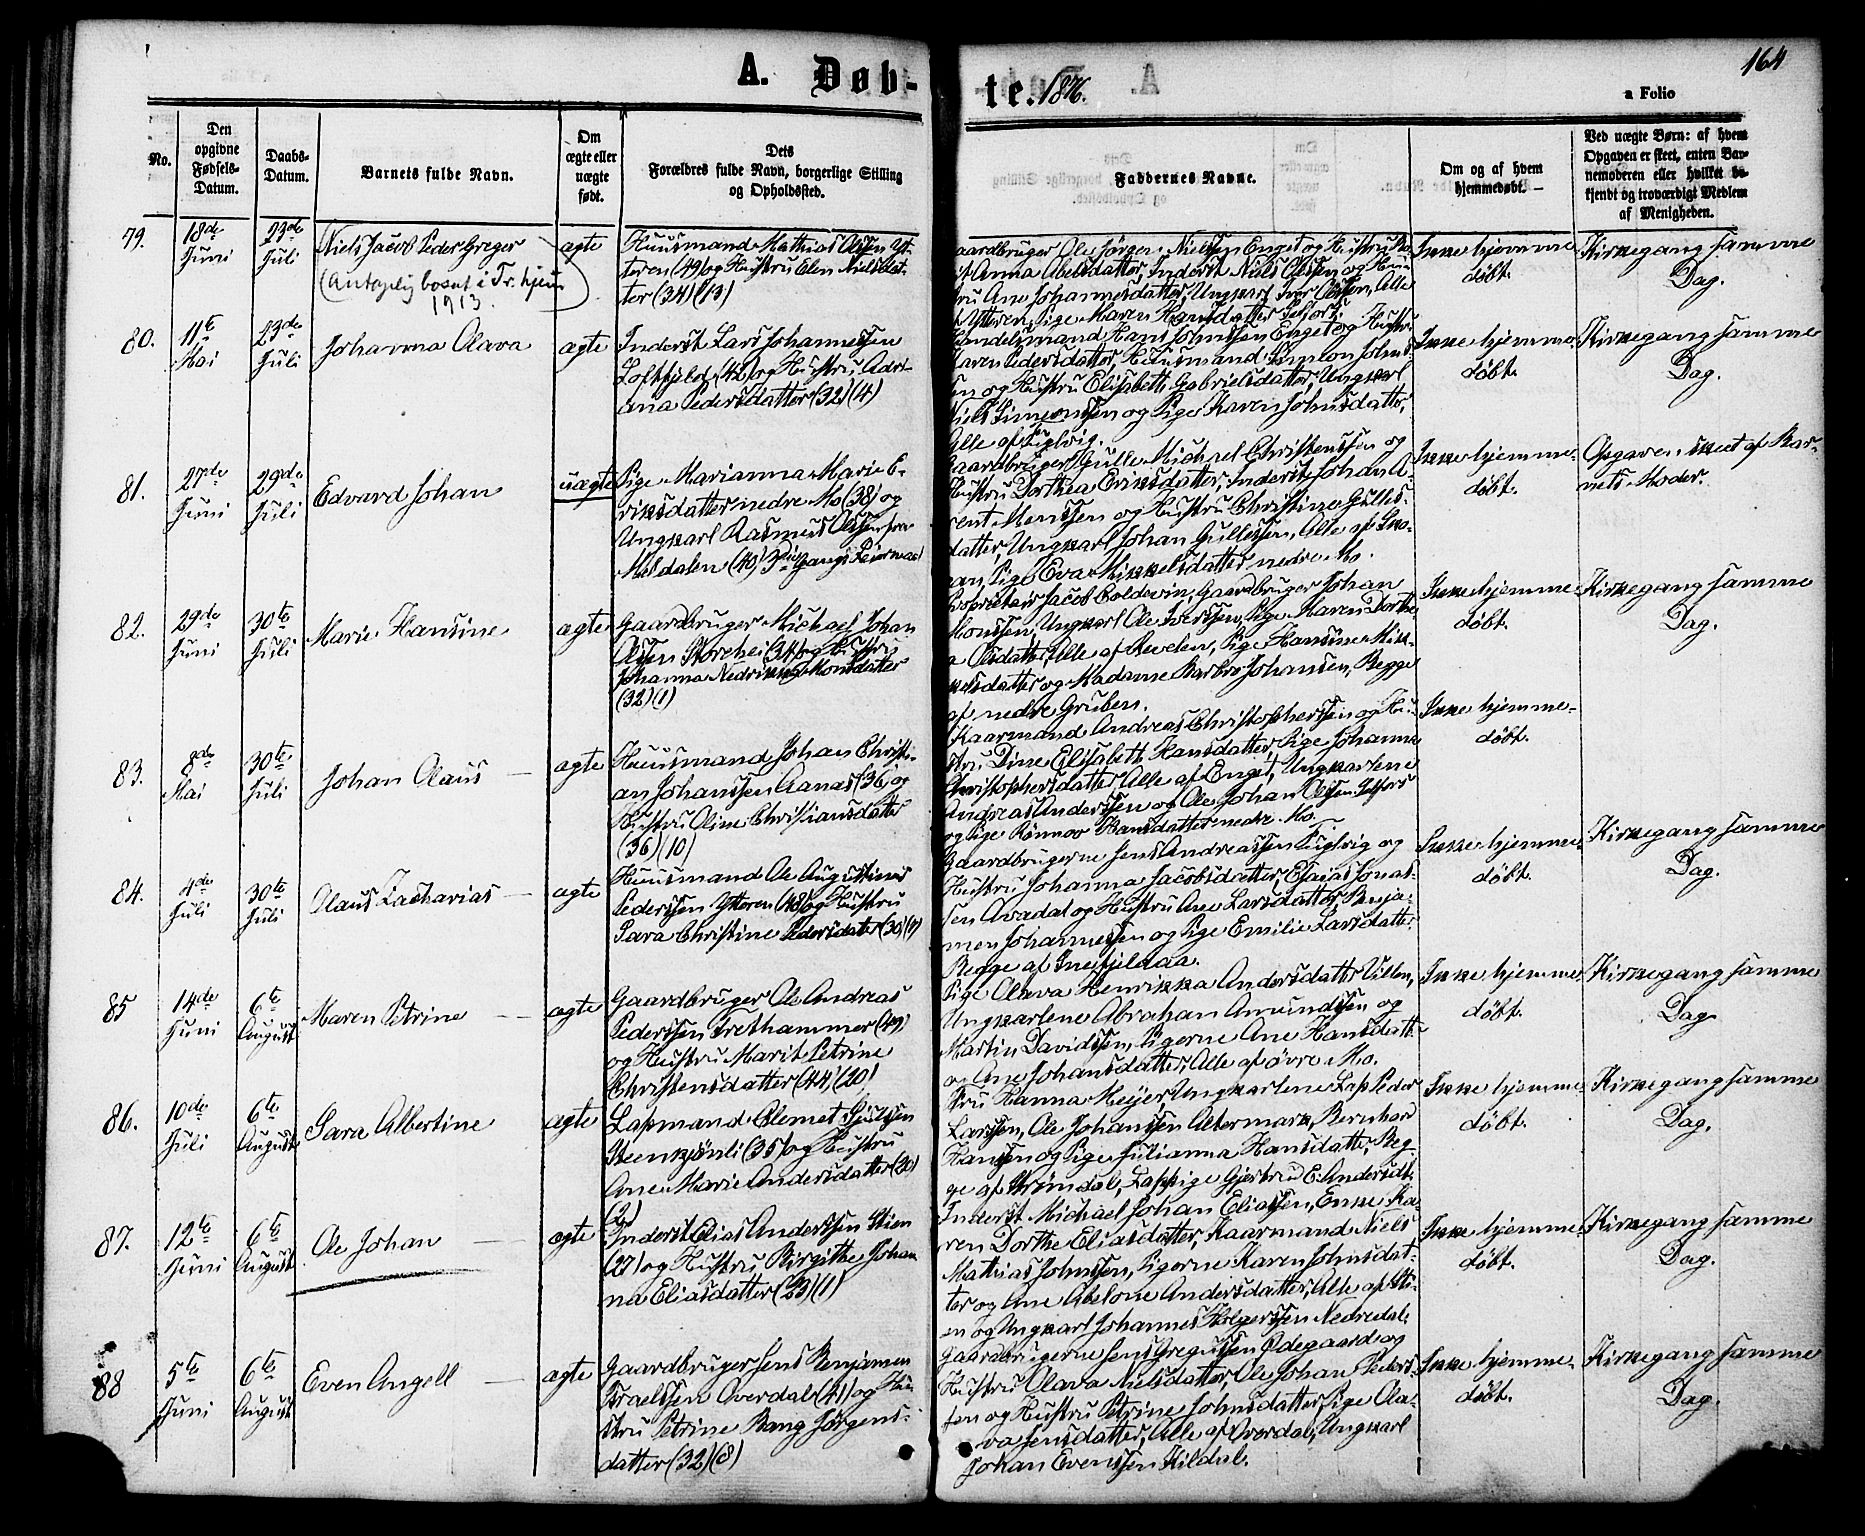 A. Døb-
te. 1876.
164
a Folio
No.
Den opgivne Fødsels-Datum.
Daabs-Datum.
Barnets fulde Navn.
Om ægte eller uægte født.
Dets Forældres fulde Navn, borgerlige Stilling og Opholdssted.
Faddernes Navne.
Om og af hvem hjemmedøbt.
Ved uægte Børn: af hvem Opgaven er skeet, enten Barnemoderen eller hvilket bekjendt og troværdigt Medlem af Menigheden.
79.
18de Juni
23de Juli
Niels Jacob Peder Greger
(Antagelig bosat i Tr.hjem 1913.)
ægte
Huusmand Mathias Olsen Yt-
teren (49) og Hustru Elen Nielsdat-
ter (34) (13)
Gaardbruger Ole Jørgen Nielssen Enget og Hustru
Anna Abelsdatter, Inderst Niels Olssen og Hu-
stru Ane Johannesdatter, Ungkarl Iver Olssen, Alle
af Ytteren, Pige Maren Hansdatter Selfors.
Ikke hjemme
døbt.
Kirkegang samme
Dag.
80.
11te Mai
23de Juli
Johanna Olava
ægte
Inderst Lars Johannessen
Loftfjeld (42) og Hustru Adri-
ana Pedersdatter (32) (4)
Hendelsmand Hans Johnssen Enget og Hustru
Maren Pedersdatter, Huusmand Simon Johns-
sen og Hustru Elisabeth Gabrielsdatter, Ungkarl
Niels Simonssen og Pige Karen Johnsdatter,
Alle af Fuglvig.
Ikke hjemme
døbt.
Kirkegang samme
Dag.
81.
27de Juni
29de Juli
Edvard Johan
uægte
Pige Marianna Marie E-
riksdatter nedre Mo (38) og
Ungkarl Rasmus Olssen fra
Meldalen (40) 3die Gangs Leiermaal
Gaardbruger Gulle Michael Christenssen og
Hustru Dorthea Eriksdatter, Inderst Johan A-
rent Monssen og Hustru Christine Gulles-
datter, Ungkarl Johan Gullessen, Alle af
Pige Eva Mikkelsdatter nedre Mo.
Ikke hjemme
døbt.
Opgaven skeet af Bar-
nets Moder.
82.
29de Juni
30te Juli
Marie Hansine
ægte
Gaardbruger Michael Johan
Olssen Storehei (34) og Hustru
Johanna Nedrikke Monsdatter
(32) (1)
Proprietair Jacob Coldevin, Gaardbruger Johan
Monssen, Ungkarl Ole Iverssen, Pige Maren Dorthe
a Olsdatter, Alle af Revelen, Pige Hansine Mik-
kelsdatter og Madame Barbro Johansen, Begge
af nedre Gruben.
Ikke hjemme
døbt.
Kirkegang samme
Dag.
83.
8de Mai
30te Juli
Johan Olaus
ægte
Huusmand Johan Christi-
an Johanssen Aanæs (36) og
Hustru Oline Christiansdatter
(36) (10)
Kaarmand Andreas Christopherssen og Hu-
stru Dine Elisabeth Hansdatter, Pige Johanna
Christophersdatter, Alle af Enget, Ungkarlene
Andreas Anderssen og Ole Johan Olssen Selfors
og Pige Rønnov Hansdatter nedre Mo.
Ikke hjemme-
døbt.
84.
4de Juli
30te Juli
Olaus Zacharias
ægte
Huusmand Ole Augustinus
Pederssen Ytteren (48) og Hustru
Sara Christine Pedersdatter (30) (7)
Gaardbrugerne Jens Andreassen Fuglvig og
Hustru Johanna Jacobsdatter, Esaias Jonas-
sen Avadal og Hustru Ane Larsdatter, Benja-
men Johannessen og Pige Emilie Larsdatter
Begge af Snefjelaaa.
Ikke hjemme
døbt.
Kirkegang samme
Dag.
85
14de Juni
6te August
Maren Petrine
ægte
Gaardbruger Ole Andreas
Pederssen Trethammer (49)
og Hustru Marit Petrine
Christensdatter (44) (20)
Pige Olava Henrikka Andersdatter Villen,
Ungkarlene Abrahan Amundssen og
Martin Davidssen, Pigerne Ane Hansdatter
og Ane Johansdatter, Alle af øvre Mo.
Ikke hjemme
døbt.
Kirkegang samme
Dag
86.
10de Juli
6te August
Sara Albertine
ægte
Lapmand Clemet Sjulssen
Steenkjønli (35) og Hustru
Ane Marie Andersdatter (20)
(2)
Fru Hanna Meijer, Ungkarlene Lap Peder
Larssen, Ole Johanssen Altermark, Bernhard
Hanssen og Pige Julianna Hansdatter, Beg-
ge af Strømdal, Lappige Gjertru E. Andersdt.
Ikke hjemme
døbt.
Kirkegang samme
Dag.
87.
12te Juni
6te August
Ole Johan
ægte
Inderst Elias Anderssen Stien
(27) og Hustru Birgitte Johan
na Eliasdatter (23) (1)
Inderst Michael Johan Eliassen, Enke Ka-
ren Dorthe Eliasdatter, Kaarmand Niels
Mathias Johnssen, Pigerne Karen Johnsdat-
ter og Ane Abelone Andersdatter, Alle af Sti-
en og Ungkarl Johannes Holgerssen Nedredal.
Ikke hjemme
døbt.
Kirkegang samme
Dag.
88
5te Juni
6te August
Even Angell
ægte
Gaardbruger Jens Benjamen
Israelssen Overdal (41) og Hu-
stru Petrine Bang Jørgens-
datter (32) (8)
Gaardbrugerne Jens Gregussen Ødegaard og
Hustru Olava Nielsdatter, Ole Johan Peders-
sen og Hustru Petrine Johnsdatter, Pige Ola-
va Jensdatter, Alle af Overdal, Ungkarl
Johan Evenssen Kildal.
Ikke hjemme
døbt.
Kirkegang samme
Dag.